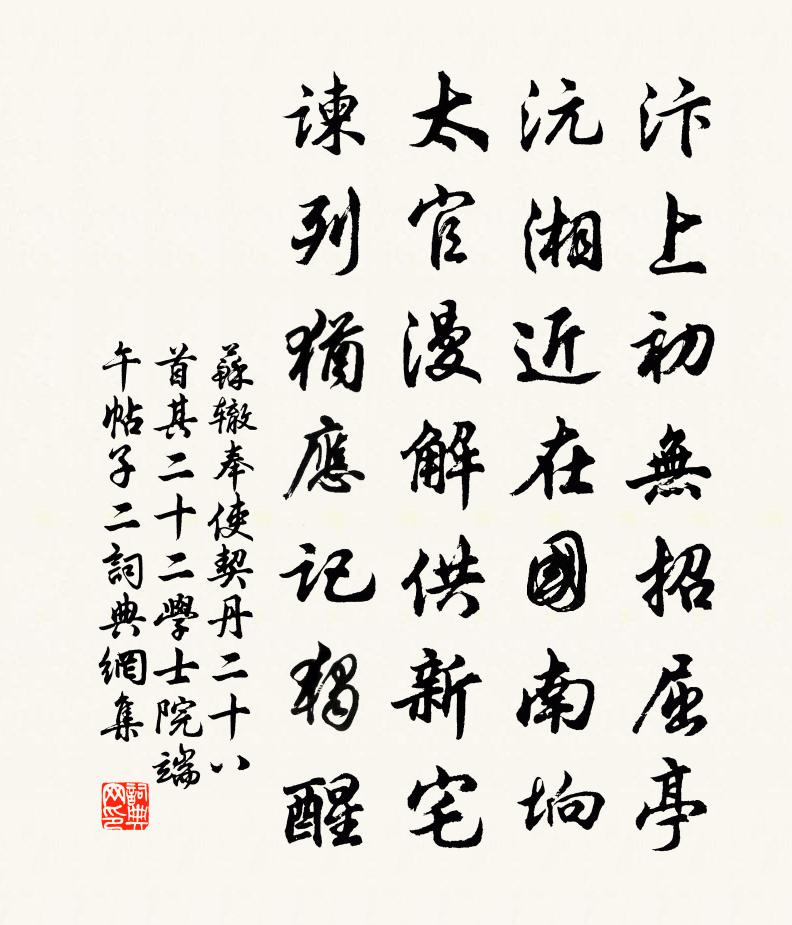 汴上初無招屈亭
沅湘近在國南坰
太官漫解供新宅
諫列猶應記獨醒
蘇辙奉使契丹二十八
首其二十二學士院端
午帖子二詞典網集
詞典网印